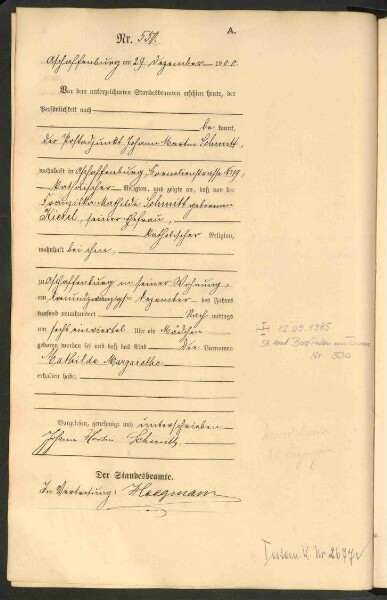 A.
Nr. 551.
Aschaffenburg am 29. Dezember 190
Vor dem unterzeichneten Standesbeamten erschien heute, der
Persönlichkeit nach
be kannt,
der Postadjunkt Johann Martin Schmitt,
wohnhaft in Aschaffenburg, Cornelienstraße
katholischer Religion, und zeigte an, daß von der
Franziska Mathilde Schmitt geborenen
seiner Ehefrau,
katholischer Religion,
wohnhaft bei ihm,
zu Aschaffenburg in seiner Wohnung
am Dezember des Jahres
tausend neunhundert Nach mittags
um sechs einviertel Uhr ein Mädchen
geboren worden sei und daß das Kind die Vornamen
Mathilde Margarethe
erhalten habe.
Vorgelesen, genehmigt und unterschrieben
Johann Martin Schmitt
Der Standesbeamte.
In Vertretung:
12.09.1985
St. Amt Bad
Nr. 330
Testam. K. Nr. 2677